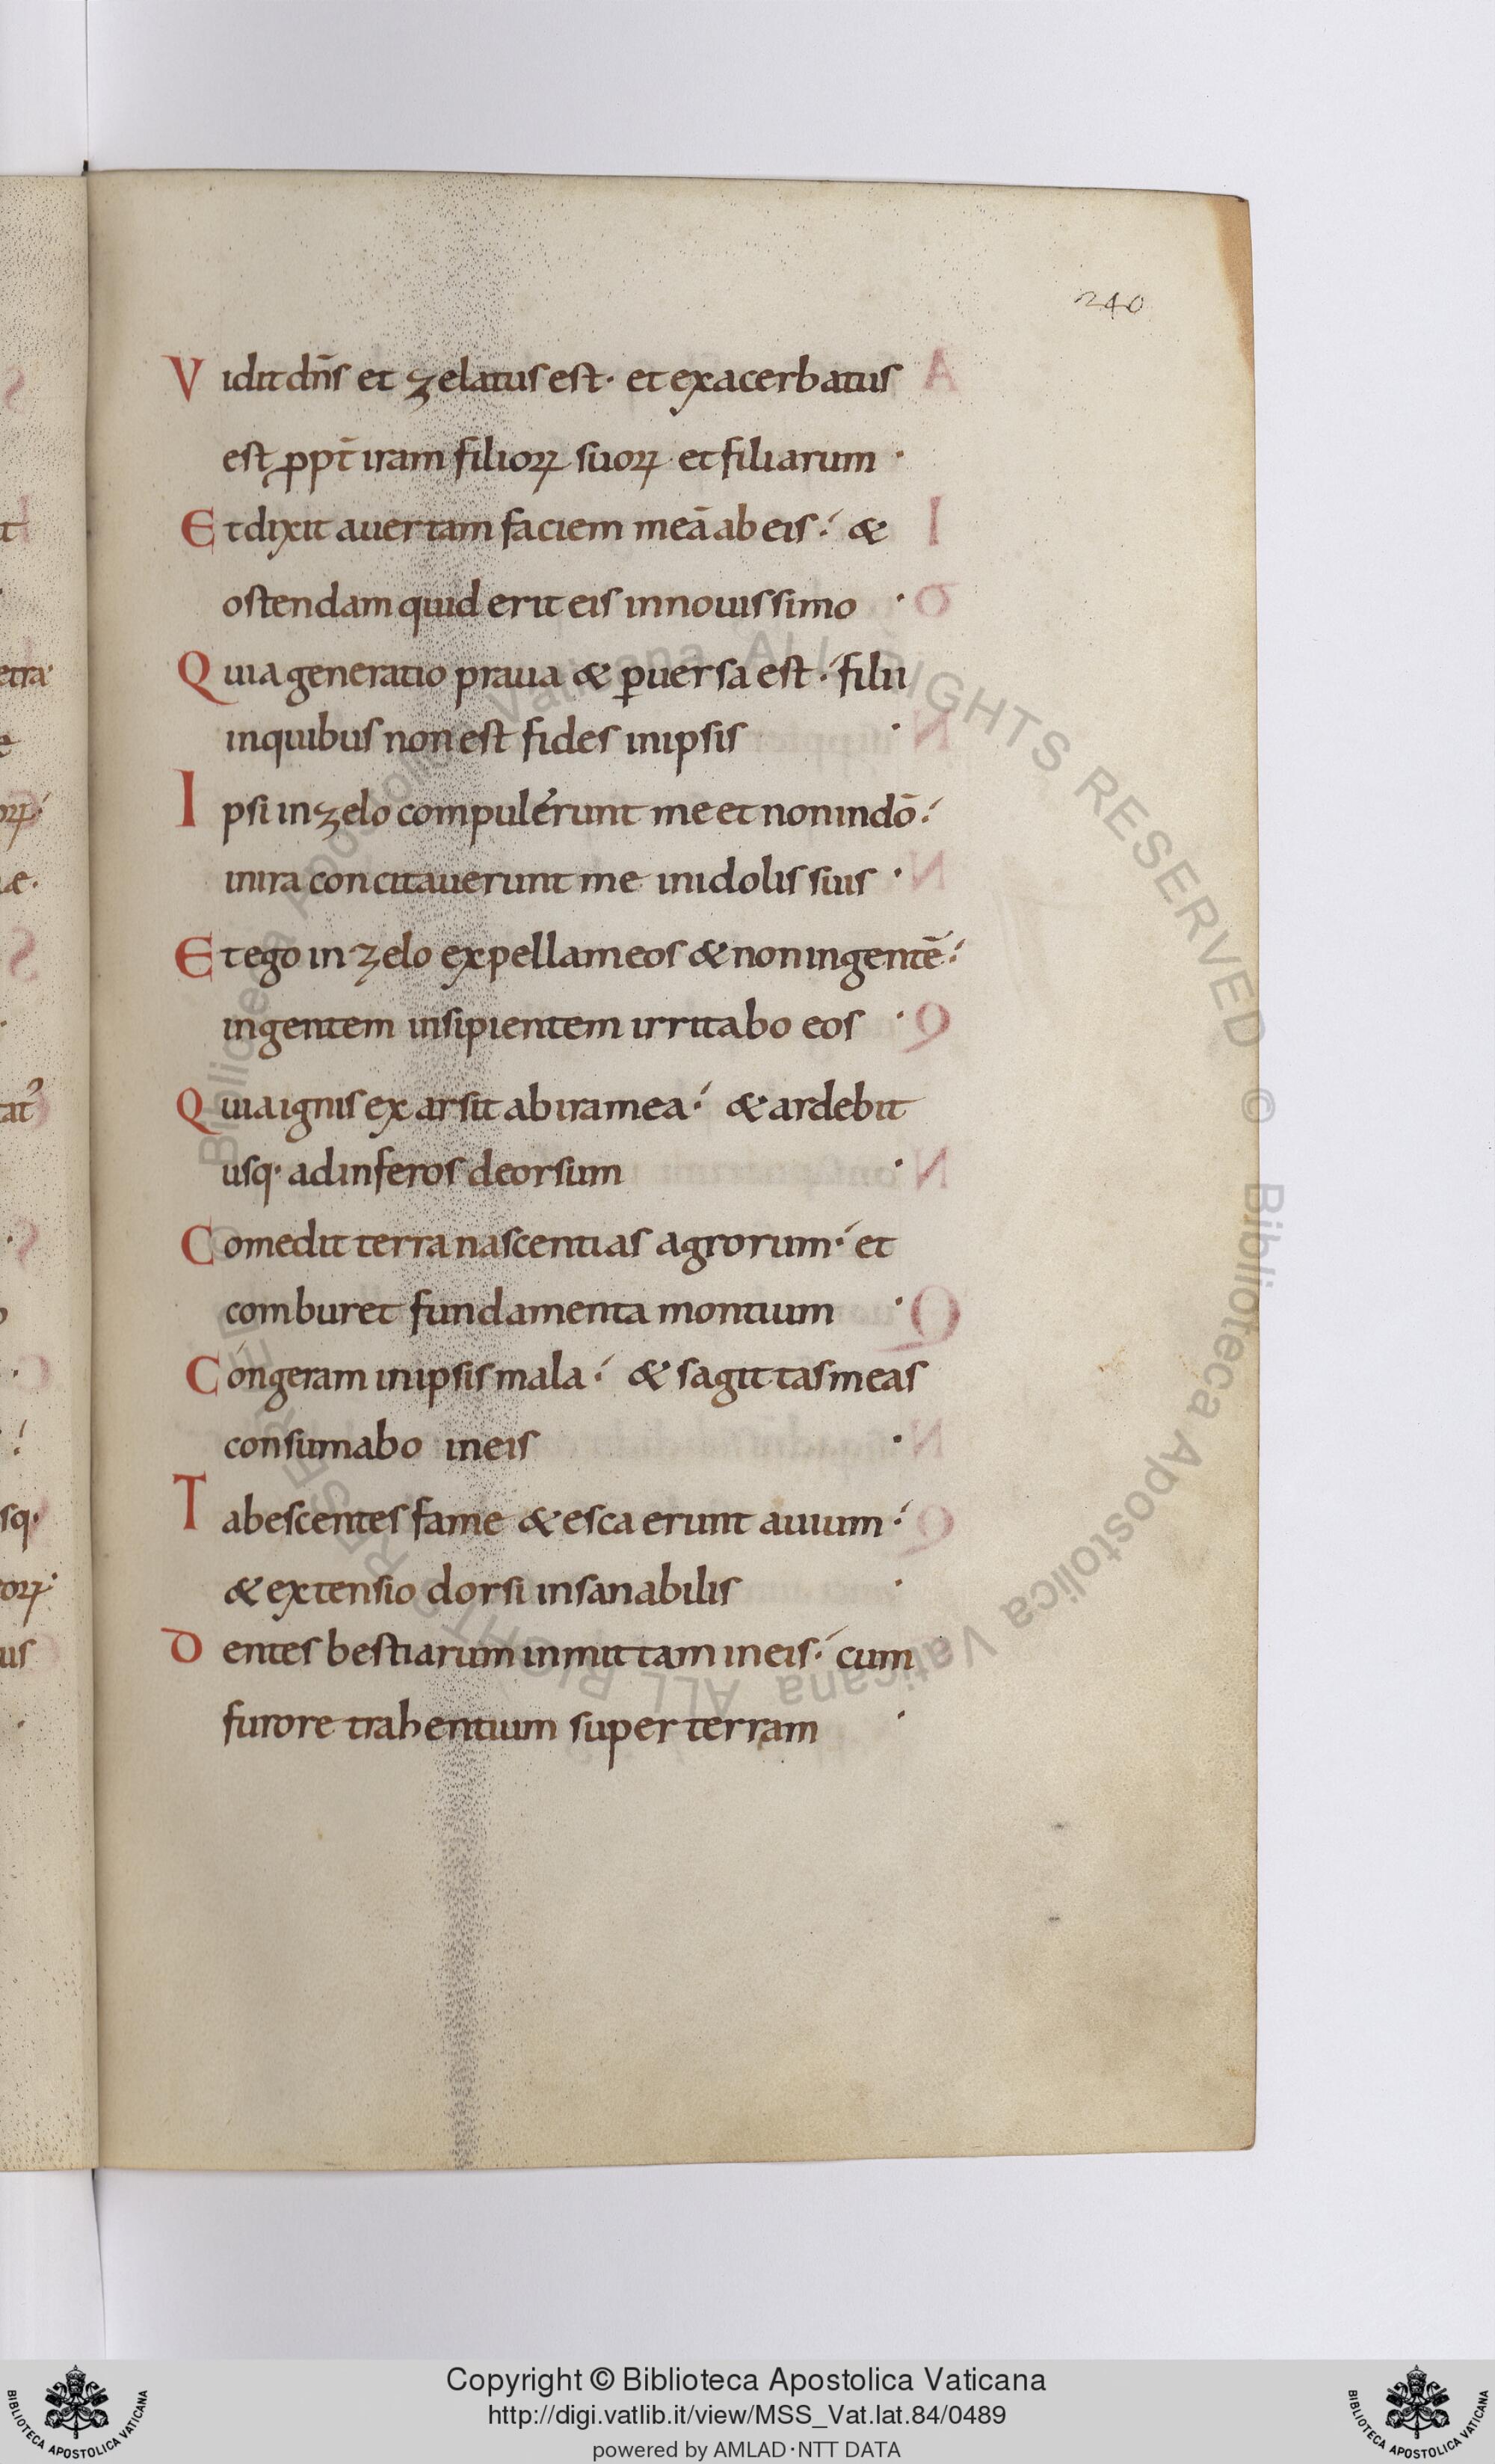 240
Vidit dn̄s et zelatus est· et exacerbatus
est ꝓpt̄ iram filioꝝ suoꝝ et filiarum ·
Et dixit auertam faciem meā ab eis ·́ &
ostendam quid erit eis in nouissimo ·
Quia generatio praua & ꝑuersa est ·́ filii
in quibus non est fides in ipsis ·
Ipsi in zelo compulérunt me et non in dō ·́
in ira concitauerunt me in idolis suis ·
Et ego in zelo expellam eos & non in gentē ·́
in gentem insipientem irritabo eos ·
Quia ignis exarsit ab ira mea ·́ & ardebit
usq· ad inferos deorsum ·
Comedit terra nascentias agrorum ·́ et
comburet fundamenta montium ·
Cóngeram in ipsis mala ·́ & sagittas meas
consumabo in eis ·
Tabescentes fame & esca erunt auium ·́
& extensio dorsi insanabilis ·
Dentes bestiarum inmittam in eis ·́ cum
furore trahentium super terram ·
Biblioteca Apostolica Vaticana ALL RIGHTS RESERVED © Biblioteca Apostolica Vaticana ALL RIGHTS RESERVED ©
Copyright © Biblioteca Apostolica Vaticana
http://digi.vatlib.it/view/MSS_Vat.lat.84/0489
powered by AMLAD·NTT DATA
BIBLIOTECA APOSTOLICA VATICANA
BIBLIOTECA APOSTOLICA VATICANA